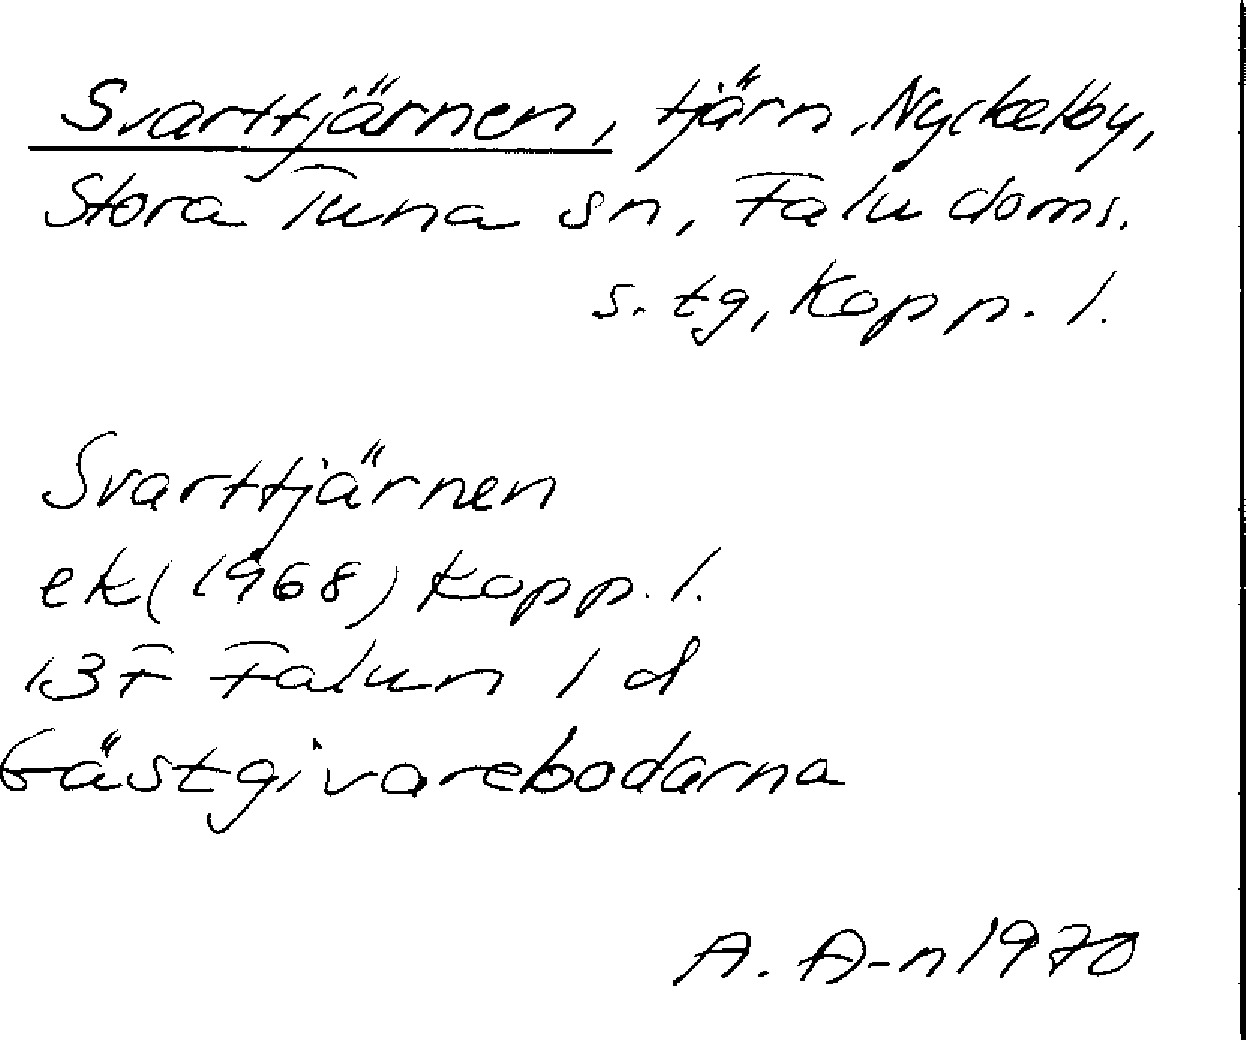 Svarttjärnen, tjärn, Nyckelby,
Stora Tuna sn, Falu doms.
s. tg, Kopp. l.
Svarttjärnen
ek (1968) Kopp. l.
13F Falun 1 d
Gästgivarebodarna
A. A-n 1970